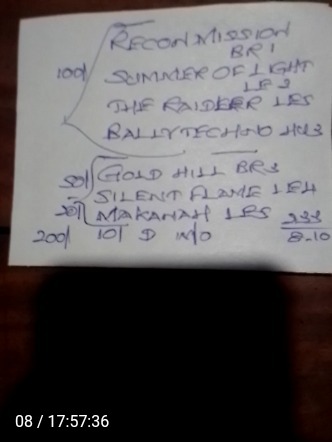 RECON MISSION
BR1
100/ SUMMER OF LIGHT
LE3
THE RAIDEER LE5
BALLYTECHNO
50/ GOLD HILL BR3
SILENT FLAME LE4
20/ MAKANAH LE5
200/ 10/ D W/O 233
8-10
08 / 17:57:36